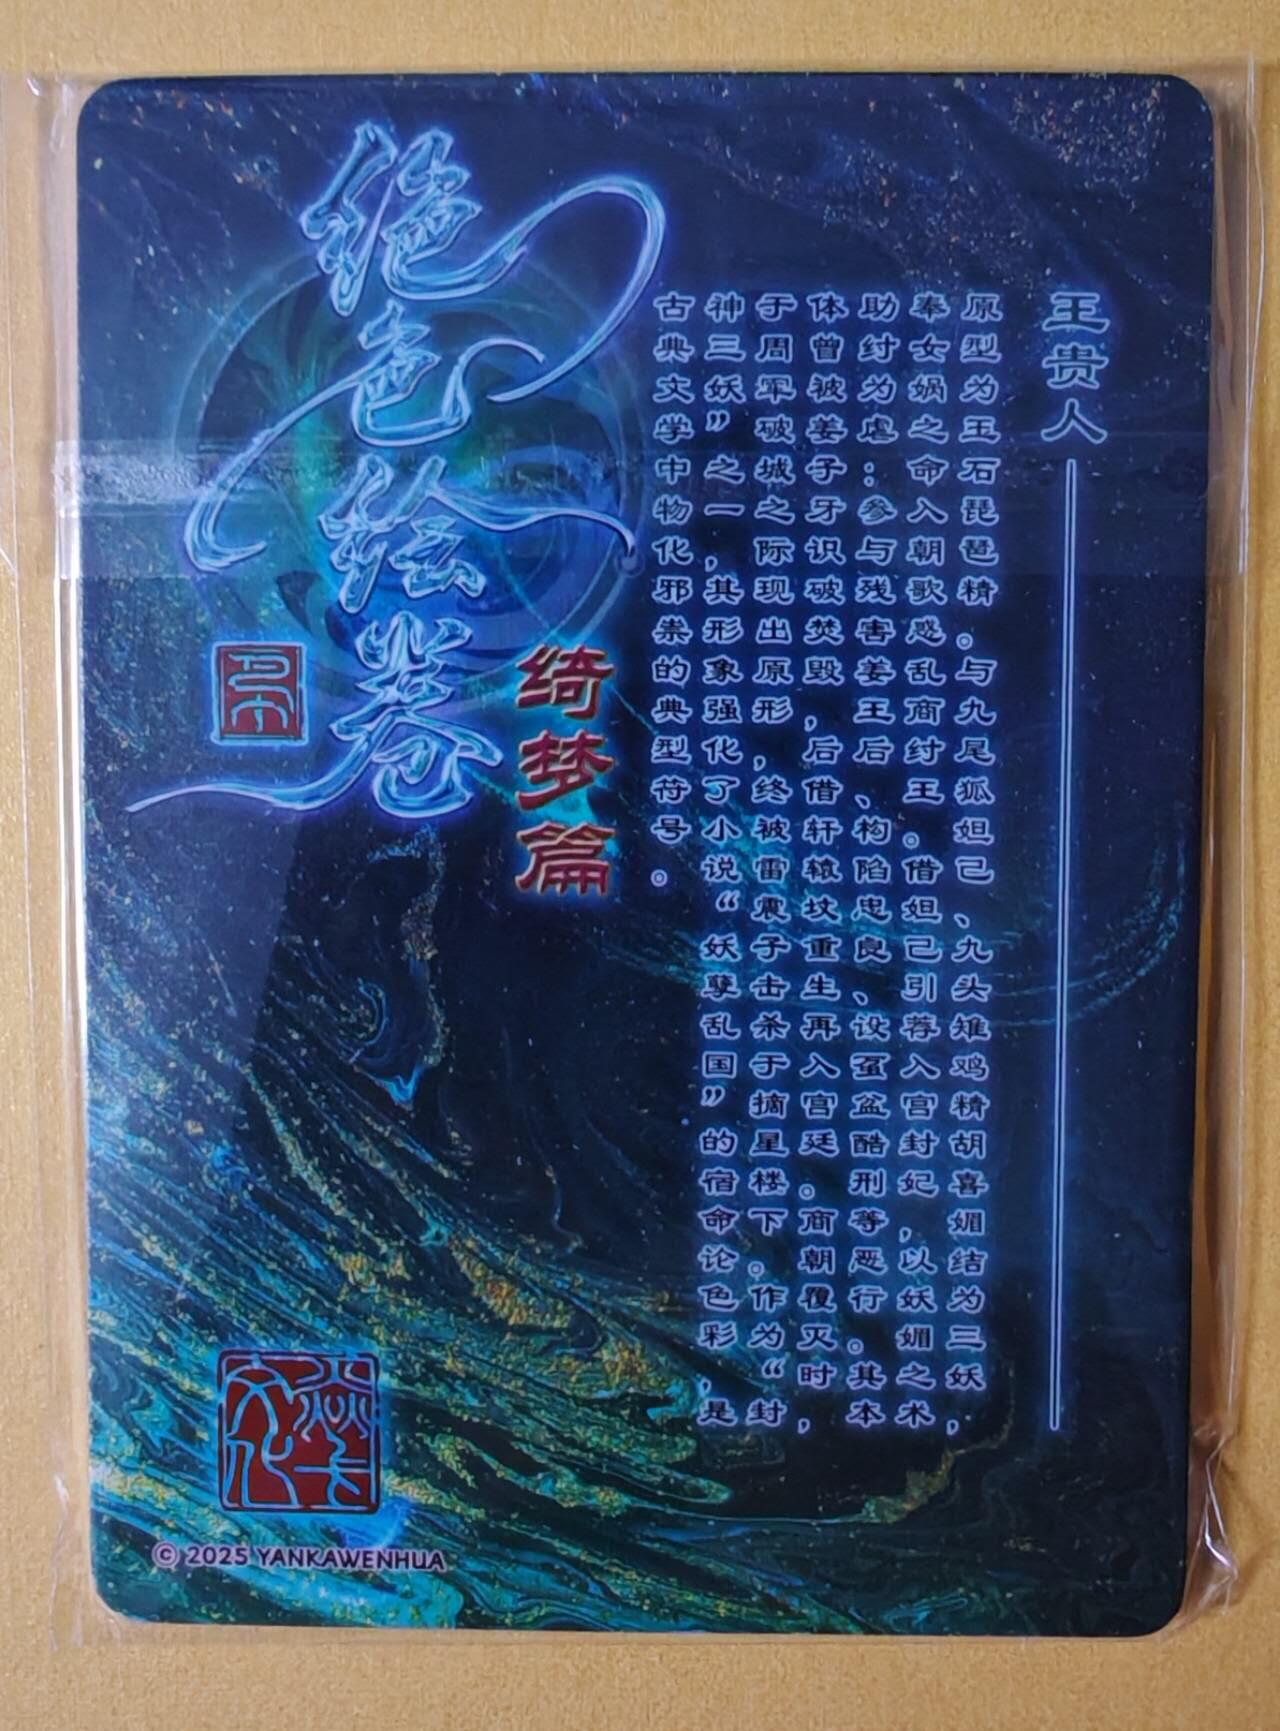 王贵人
原型为玉石琵琶精。与九尾狐妲己、九头雉鸡精胡喜媚结为三妖，
奉女娲之命入朝歌惑乱商纣王。借妲己引荐入宫封妃，以妖媚之术，
助纣为虐：参与残害姜王后、构陷忠良、设虿盆酷刑等恶行。其本
体曾被姜子牙识破焚毁，后借轩辕坟重生再入宫廷。商朝覆灭时，
于周军破城之际现出原形，终被雷震子击杀于摘星楼下。作为“封
神三妖”之一，其形象强化了小说“妖孽乱国”的宿命论色彩，是
古典文学中物化邪祟的典型符号。
绝色绘卷
绮梦篇
焱卡
文化
© 2025 YANKAWENHUA